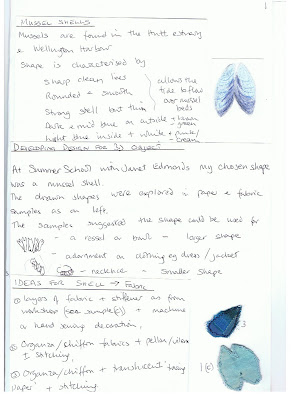 1
MUSSEL SHELLS
Mussels are found in the Hutt estuary
& Wellington Harbour
Shape is characterised by
Sharp clean lines
Rounded & smooth
Strong shell but thin
Dark & mid blue on outside
light blue inside + white +
allows the
tide to flow
over mussel
beds
DEVELOPING DESIGN FOR 3D OBJECT
At Summer School with Janet Edmonds my chosen shape
was a mussel shell.
The drawn shapes were explored in paper & fabric
samples as on left.
The samples suggested the shape could be used for
- a vessel or bowl - larger shape
- adornment on clothing eg dress / jacket
- necklace - smaller shape
IDEAS FOR SHELL → FABRIC
layers of fabric + stiffener as from
workshop (see sample(c)) + machine
& hand sewing decoration,
Organza/chiffon fabrics +
+ stitching,
Organza/chiffon + translucent
paper + stitching
3
1(c)